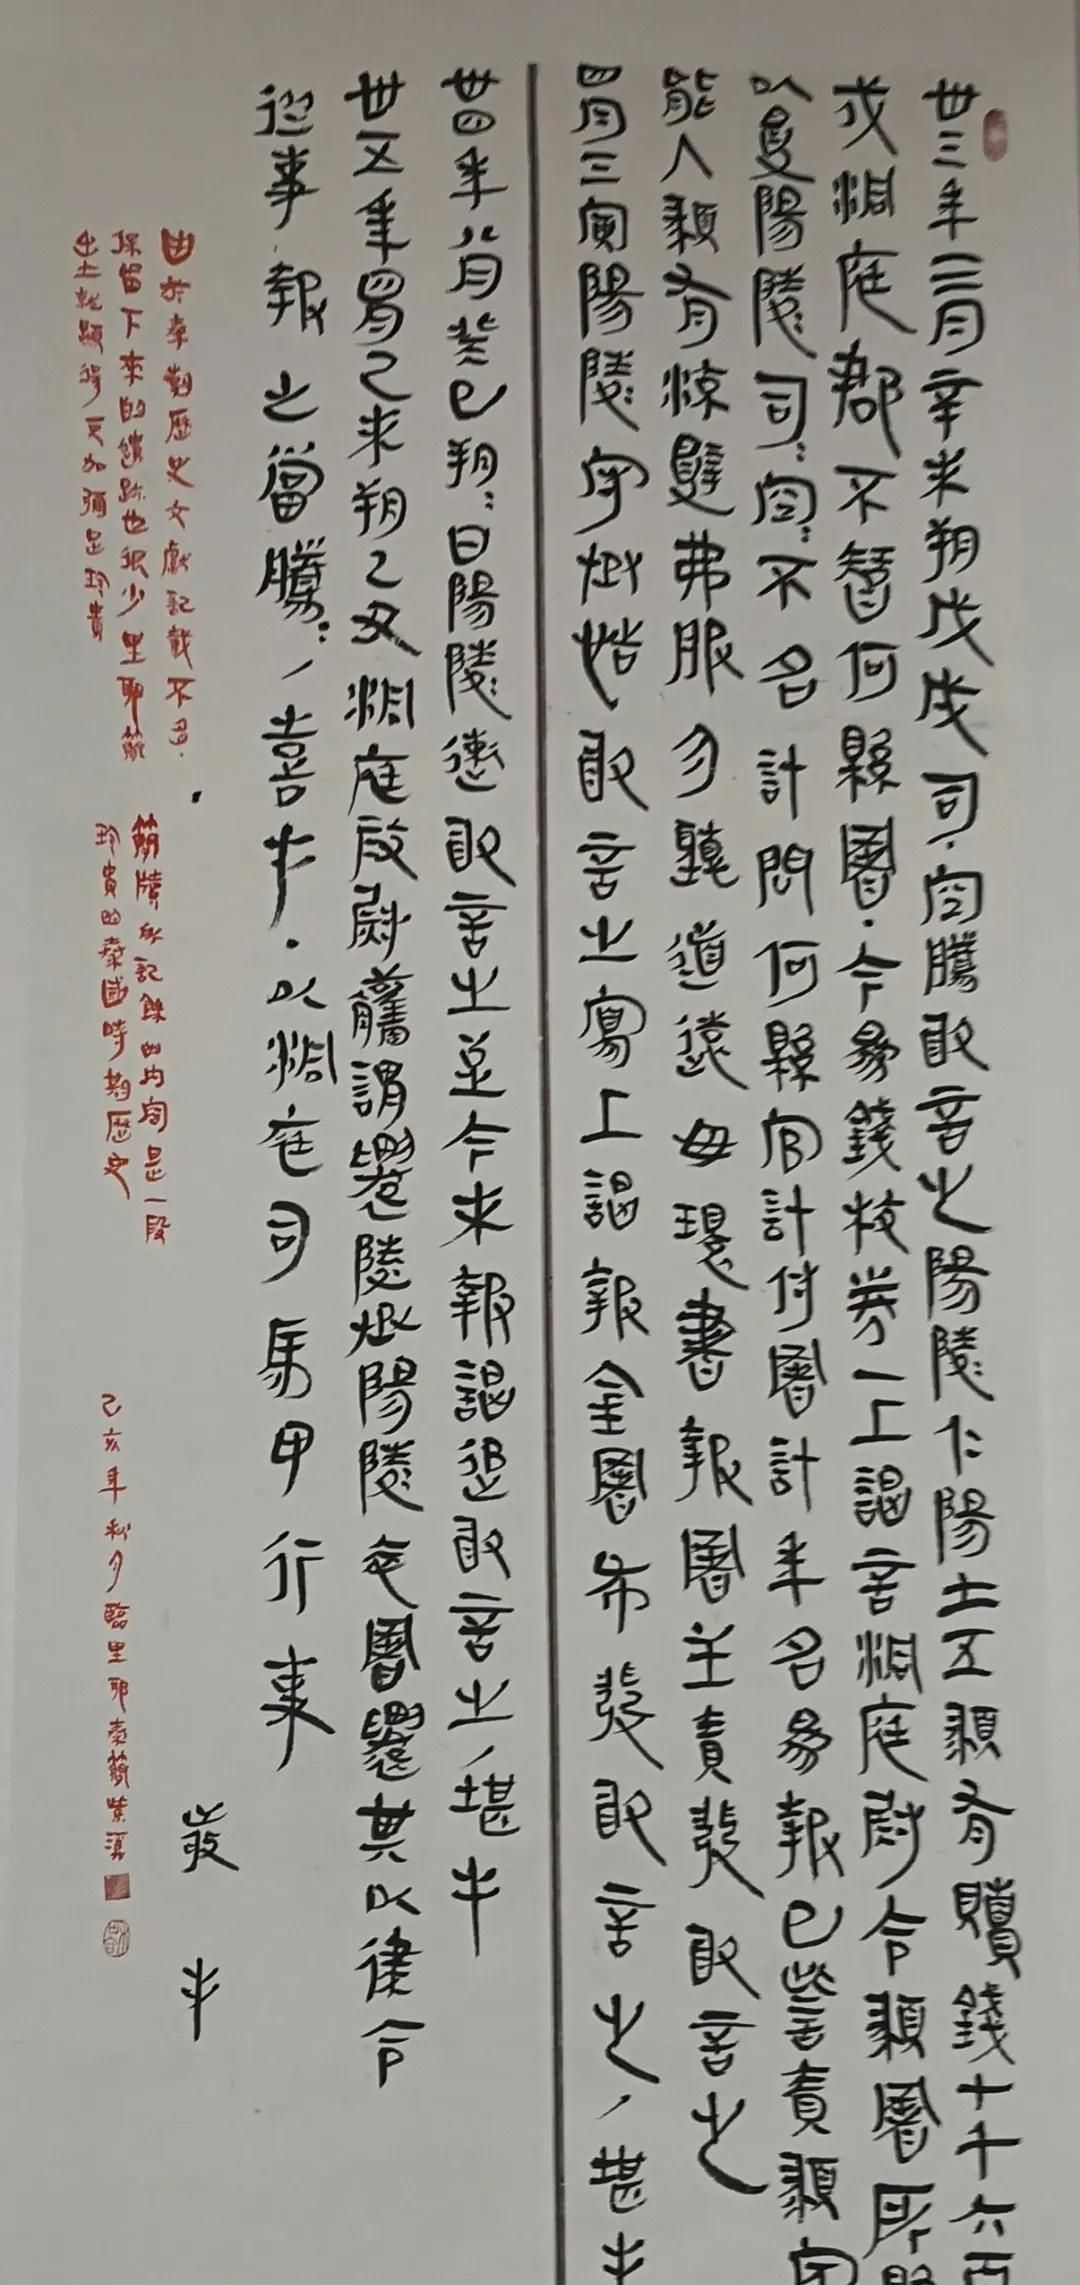 卅三年三月辛未朔戊戌司空騰敢言之陽陵仁陽士五顤有贖錢七千六百
戍洞庭郡不智何縣署·今為錢校券一上謁言洞庭尉令顤署所縣
以受陽陵司=空=不名計問何縣官計付署計年名為報已訾責顤家
能入顤有流辟弗服勿聽道遠毋環書報署主責發敢言之
四月壬寅陽陵守丞恬敢言之寫上謁報金署布發敢言之/堪手
卅四年八月癸巳朔=日陽陵遬敢言之至今未報謁追敢言之/堪手
卅五年四月己未朔乙丑洞庭叚尉觿謂遷陵丞陽陵卒署遷其以律令
從事報之當騰=/嘉手·以洞庭司馬印行事
敬手
由於秦對歷史文獻記載不多·
保留下來的遺跡也很少里耶簡
出土就顯得更加彌足珍貴
簡牘所記錄的內容是一段
珍貴的秦國時期歷史
己亥年秋月臨里耶秦簡紫